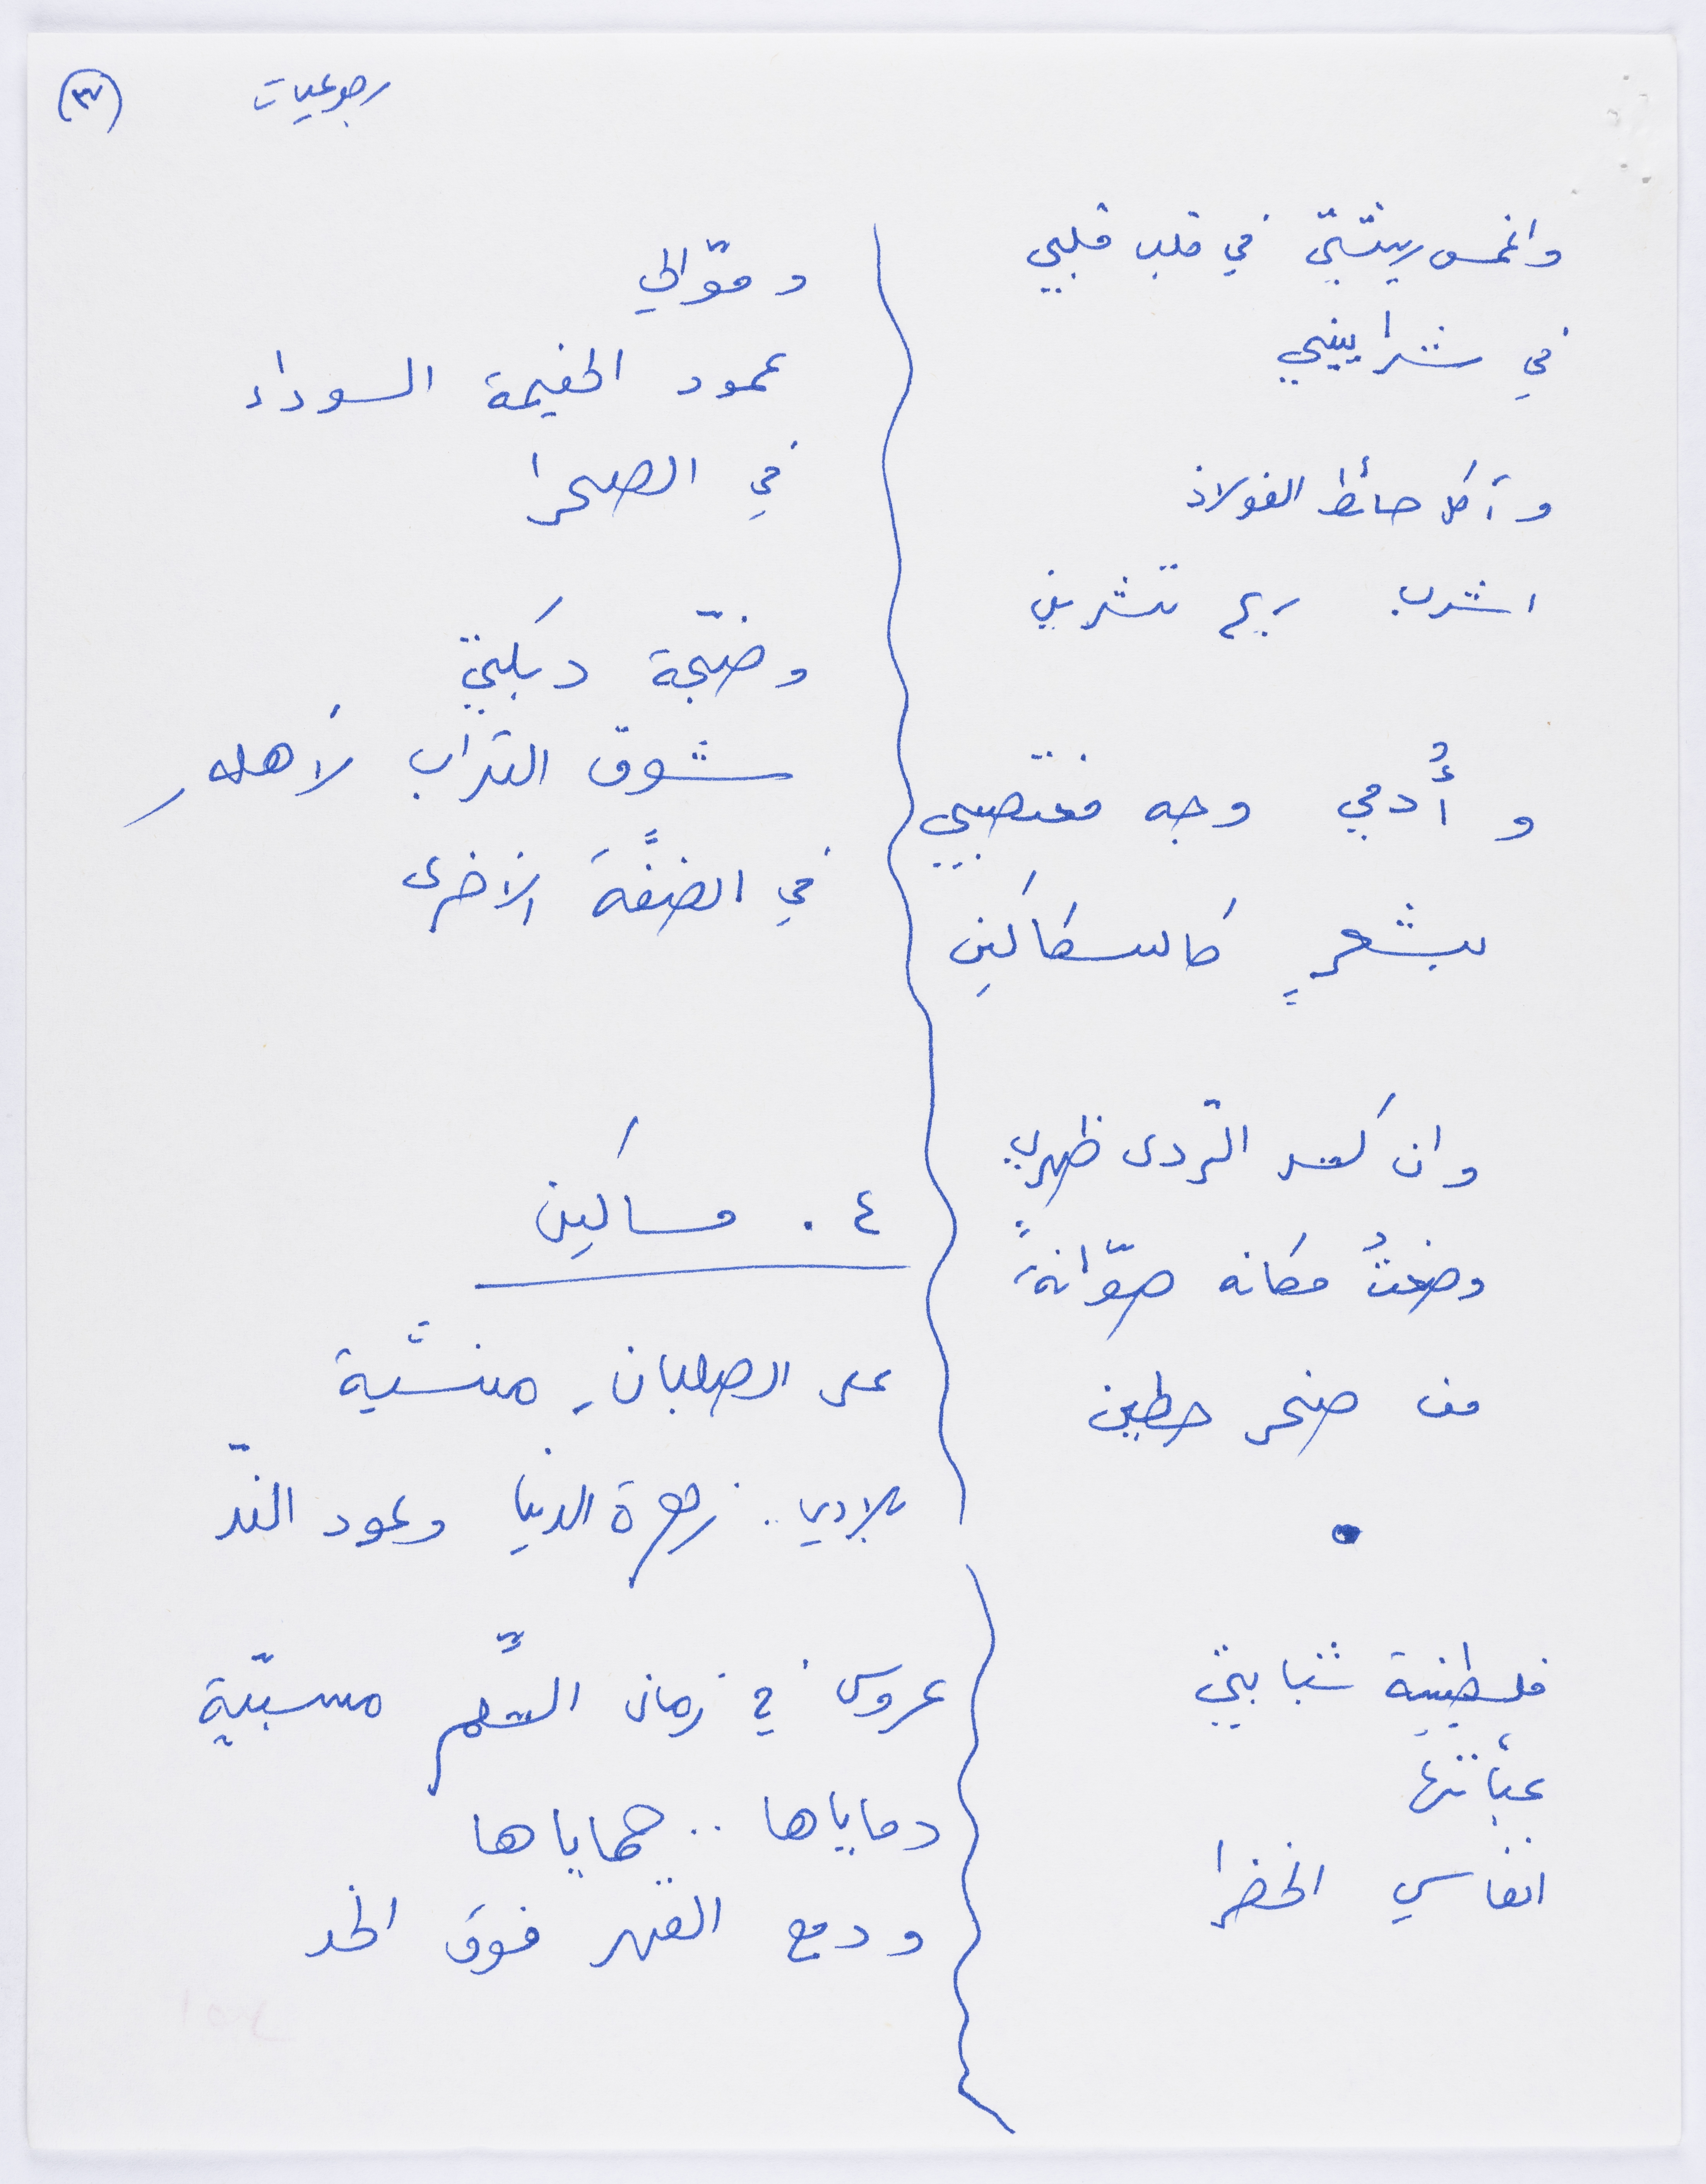 رجوعيات
(٣٧)
واغمس ريشتي في قلب قلبي
في شراييني
وآكل حائط الفولاذ
اشرب ريح تشرين
وأُدمي وجه مغتصبي
بشعرٍ كالسكاكينِ
وان كسر الردى ظهري
وضعتُ مكانه صوّانةً
من صخر حطين
•
فلسطينية شبابتي
عبّأتها
انفاسي الخضرا
وموّالي
عمود الخيمة السوداء
في الصحرا
وضجّة دبكتي
شوق التراب لأهلهِ
في الضفَّة الأخرى
٤ . مساكين
على الصلبانِ منسيّة
بلادي .. زهرة الدنيا وعود الندّ
عروس في زمان السِّلم مسبيّة
دماياها .. حماياها
ودمع القهر فوق الخد